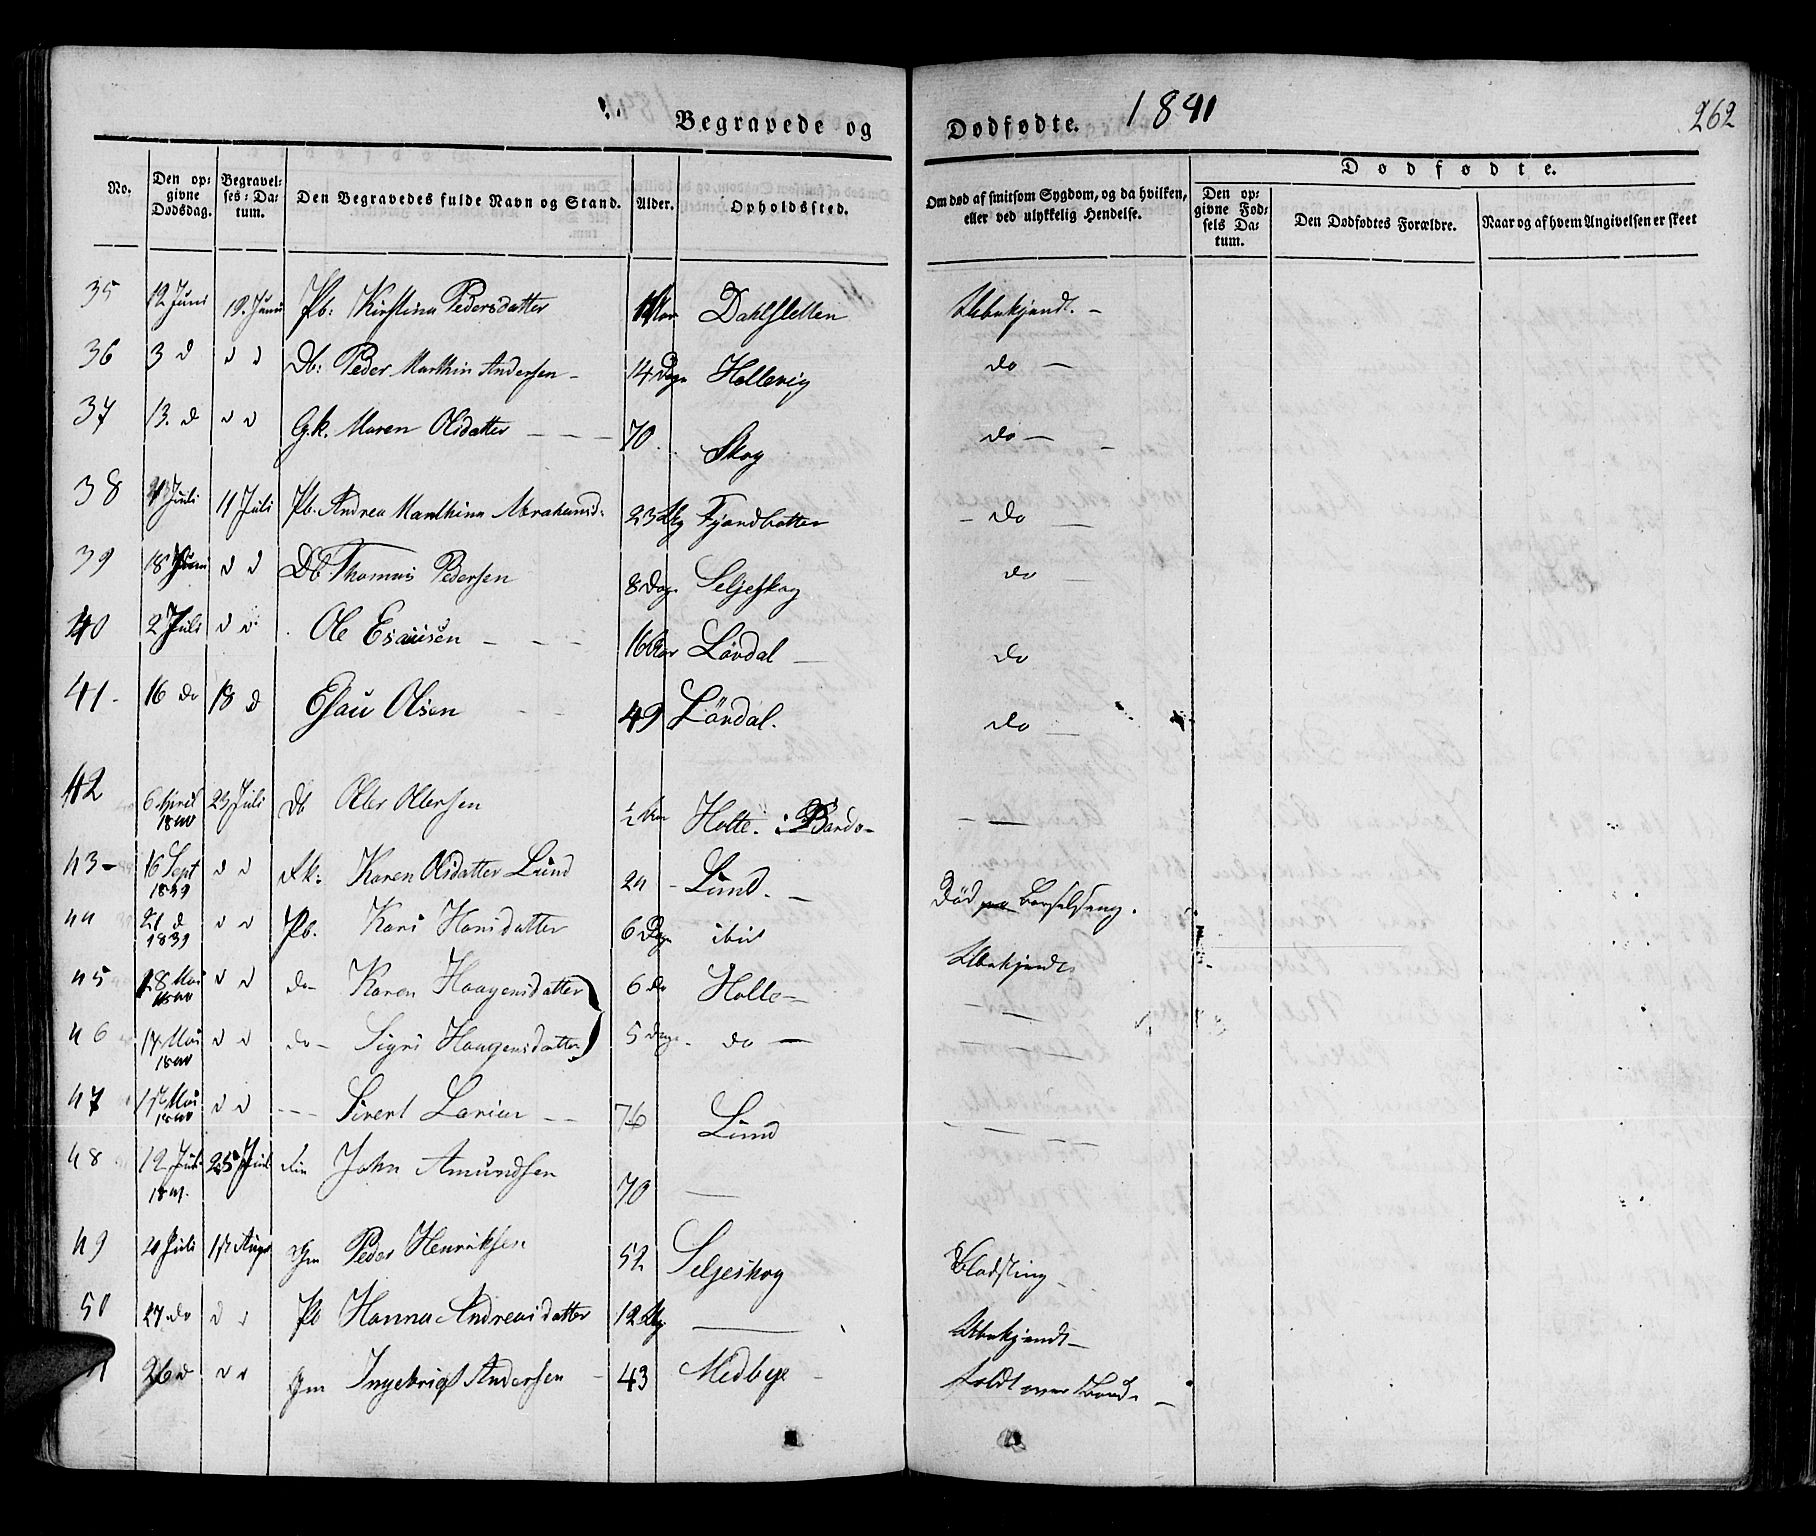 Begravede og Dødfødte. 1841 262
No. Den opgivne Dødsdag. Begravelses-Datum. Den Begravedes fulde Navn og Stand. Alder. Opholdssted. Om død af smitsom Sygdom, og da hvilken, eller ved ulykkelig Hendelse. Dødfødte. Den opgivne Fødsels Datum. Den Dødfødtes Forældre. Naar og af hvem Angivelsen er skeet
35 12 Juni 19. Juni Pb: Kirstina Pedersdatter Dahlsletten Ubekjendt. -
36 3 d d d Db: Peder Marthin Andersen - 14 Dage Hollevig do -
37 13. d d d G.k. Maren Olsdatter - - - 70. Skog do -
38 Juli 11 Juli Pb. Andrea Marthina Abrahamsd: 23 Fjordbotten - do -
39 18 d d Db Thomas Pedersen 8 Dage Seljeskog do -
40 2 Juli d d Ole Esausen - - - 16 Aar Lövdal - do
41. 16 do 18 d Esau Olsen - - 49 Lövdal. do -
42 6 April 1840 23 Juli Db Oler Olersen ½ Aar Holte. i Bardo - - -
43 - 16 Sept 1839 d d Karen Olsdatter Lund 24 - Lund. - Død Barselseng.
44 21 d 1839 d d Pb. Kari Hansdatter 6 Dage ibid Ubekjendt
45 18 Mai 1840 d d do - Karen Haagensdatter 6 do Holte - - -
46 17 Mai 1840 d d do - Sigri Haagensdatter 5 Dage. do - - - -
47 17 Mai 1840 d d - - - Sivert Larsen - - 76 Lund - - - -
48 12 Juli 1841. 25 Juli John Amundsen 70 -
49 20 Juli 17 Augs Gm Peder Henriksen 52 Seljeskog Blodsting -
50 27 do d d Pb Hanna Andreasdatter 12 - Ubekjendt -
26 d d d Gm Ingebrigt Andersen - 43 Medbye - Faldt over Bord -